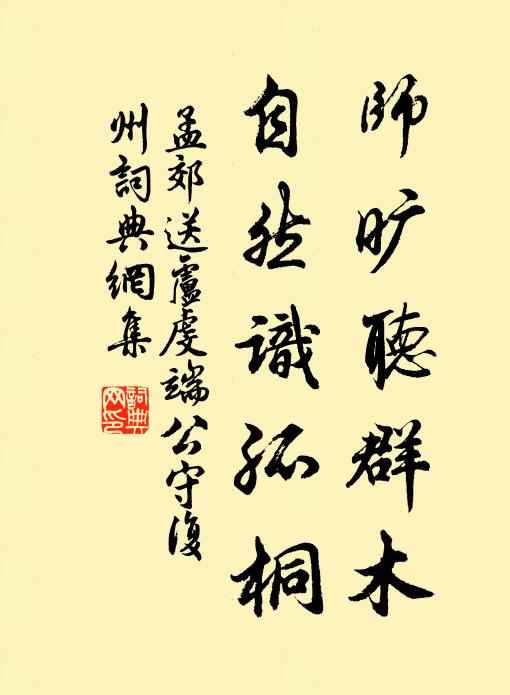 師旷聽群木
自然識孤桐
孟郊送盧虔端公守復
州詞典網集
詞典
网印